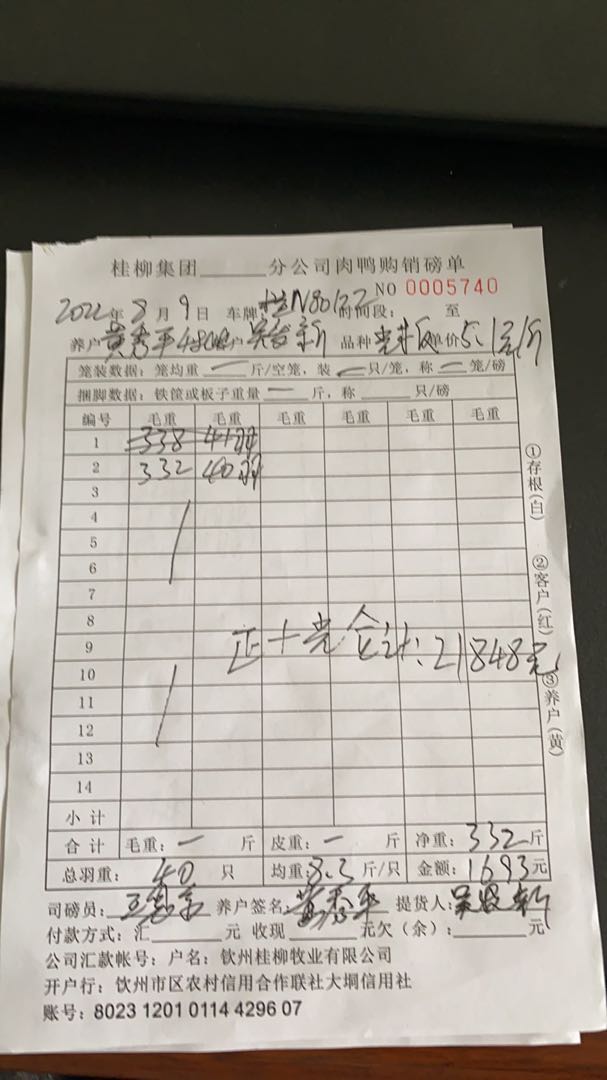 桂柳集团 分公司肉鸭购销磅单
NO 0005740
2022年8月9日 车牌 桂N80122 时间段: 至
养户 黄秀平 客户 新 品种 单价5.1元/斤
笼装数据: 笼均重 一 斤/空笼, 装 一 只/笼, 称 一 笼/磅
捆脚数据: 铁筐或板子重量 一 斤, 称 只/磅
编号 毛重 毛重 毛重 毛重 毛重 毛重
1 338 41羽
2 332 40羽
3
4
5
6
7
8
9 正+光合计: 21848元
10
11
12
13
14
小计
合计 毛重: 一 斤 皮重: 一 斤 净重: 332斤
总羽重: 40 只 均重: 8.3斤/只 金额: 1693元
司磅员: 养户签名: 黄秀平 提货人: 新
付款方式: 汇 元 收现 元欠(余): 元
公司汇款帐号: 户名: 钦州桂柳牧业有限公司
开户行: 钦州市区农村信用合作联社大垌信用社
账号: 8023 1201 0114 4296 07
①存根(白)
②客户(红)
③养户(黄)